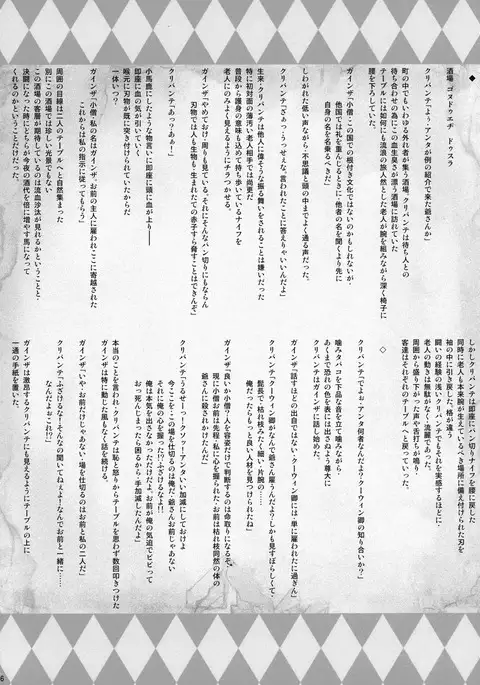 ◆
酒場「ゴズドウエチ ドゥスラ」
クリパンテ「よう、アンタが例の紹介で来た爺さんか」
町の中でもいわゆる外れ者が集う酒場、クリパンテは待ち人との
待ち合わせの為にこの血生臭さが漂う酒場に訪れていた
テーブルには如何にも流浪の旅人然とした老人が腕を組みながら深く椅子に
腰を下ろしていた。
ガインザ「小僧、この国での根付き文化ではないのかもしれないが
他国では礼を重んじるときに、他者の名を聞くより先に
自身の名を名乗るべきだ」
しわがれた低い声ながら、不思議と頭の中までよく通る声だった。
クリパンテ「さぁっっっせぇな。言われたことに答えりゃいいんだよ」
生来、クリパンテは他人に偉そうな振る舞いをされることは嫌いだった
特に初対面の薄汚い老人相手では尚更だ
普段から護身の意味も込めて持ち歩いているナイフを
老人にのみよく見えるようにチラつかせる。
ガインザ「やめておけ、周りも見ている。それにそんなパン切りにもならん
刃物では人も生物も、生まれたての赤子すら脅すことはできんぞ」
クリパンテ「あっ？あぁー」
小馬鹿にしたような物言いに即座に頭に血が上り――
即座に血の気が引いていく
喉元に刃物が既に突き付けられていたからだ
一体いつ？
ガインザ「小僧、私の名はガインザ。お前の主人に雇われここに寄越された
これからは私の指示に従ってもらう」
周囲の目線は二人のテーブルへと自然集まった
別にこの酒場では珍しい光景でもない
この酒場の客層が期待しているのは流血沙汰が見れるかということと
決闘になった時にどちらが今夜の酒代を倍に増やす馬になって
くれるのかということだけだった。
しかしクリパンテは即座にパン切りナイフを腰に戻した
同時に老人も本来腕が生えているべき場所に備え付けられた刃を
袖の中に引き戻した。格が違う。
闘いの経験の浅いクリパンテでもそれを実感するほどに
老人の動きは無駄がなく、流麗であった。
周囲から盛り下がった声や舌打ちが鳴り
客達はそれぞれのテーブルへと戻っていった。
◇
クリパンテ「でよぉ、アンタ何者なんだよ？クーウィン卿の知り合いか？」
噛みタバコを下品な音を立て噛みながら
あくまで恐れの色を表には出さぬよう尊大に
クリパンテはガインザに話し始めた。
ガインザ「話すほどの出自ではない、クーウィン卿には単に雇われたに過ぎん」
クリパンテ「クーウィン卿がなんで爺さん雇うんだよ？しかも見すぼらしくて
髭長で、枯れ枝みたく細い、片腕の……
俺だったらもっと良い人材を見つけられたね」
ガインザ「良いか小僧？人を容姿だけで判断するのは命取りになるぞ。
現に小僧、お前は先程、私に心を握られた。お前は枯れ枝同然の体の
爺さんに殺されかけたんだ」
クリパンテ「うるせー！クソッ！アンタいい加減にしておけよ
今ここをこの場を仕切るのは俺だ、爺さんお前じゃあない
それに俺の心を握った!?ふざけるなよ!!
俺は本気を出さなかっただけだよ。お前が俺の気迫でビビって
おっ死んじまったら困るから、手加減したんだよ」
本当のことを言われ、クリパンテは恥と怒りからテーブルを思わず数回叩きつけた
ガインザは特に動じた風もなく話を続ける。
ガインザ「いや、お前だけじゃあない。場を仕切るのはお前と私の二人だ」
クリパンテ「ふざけるなー！そんなの聞いてねぇよー！なんでお前と一緒に……
なんだよぉこれ!?」
ガインザは激昂するクリパンテにも見えるようにテーブルの上に
一通の手紙を置いた。
6